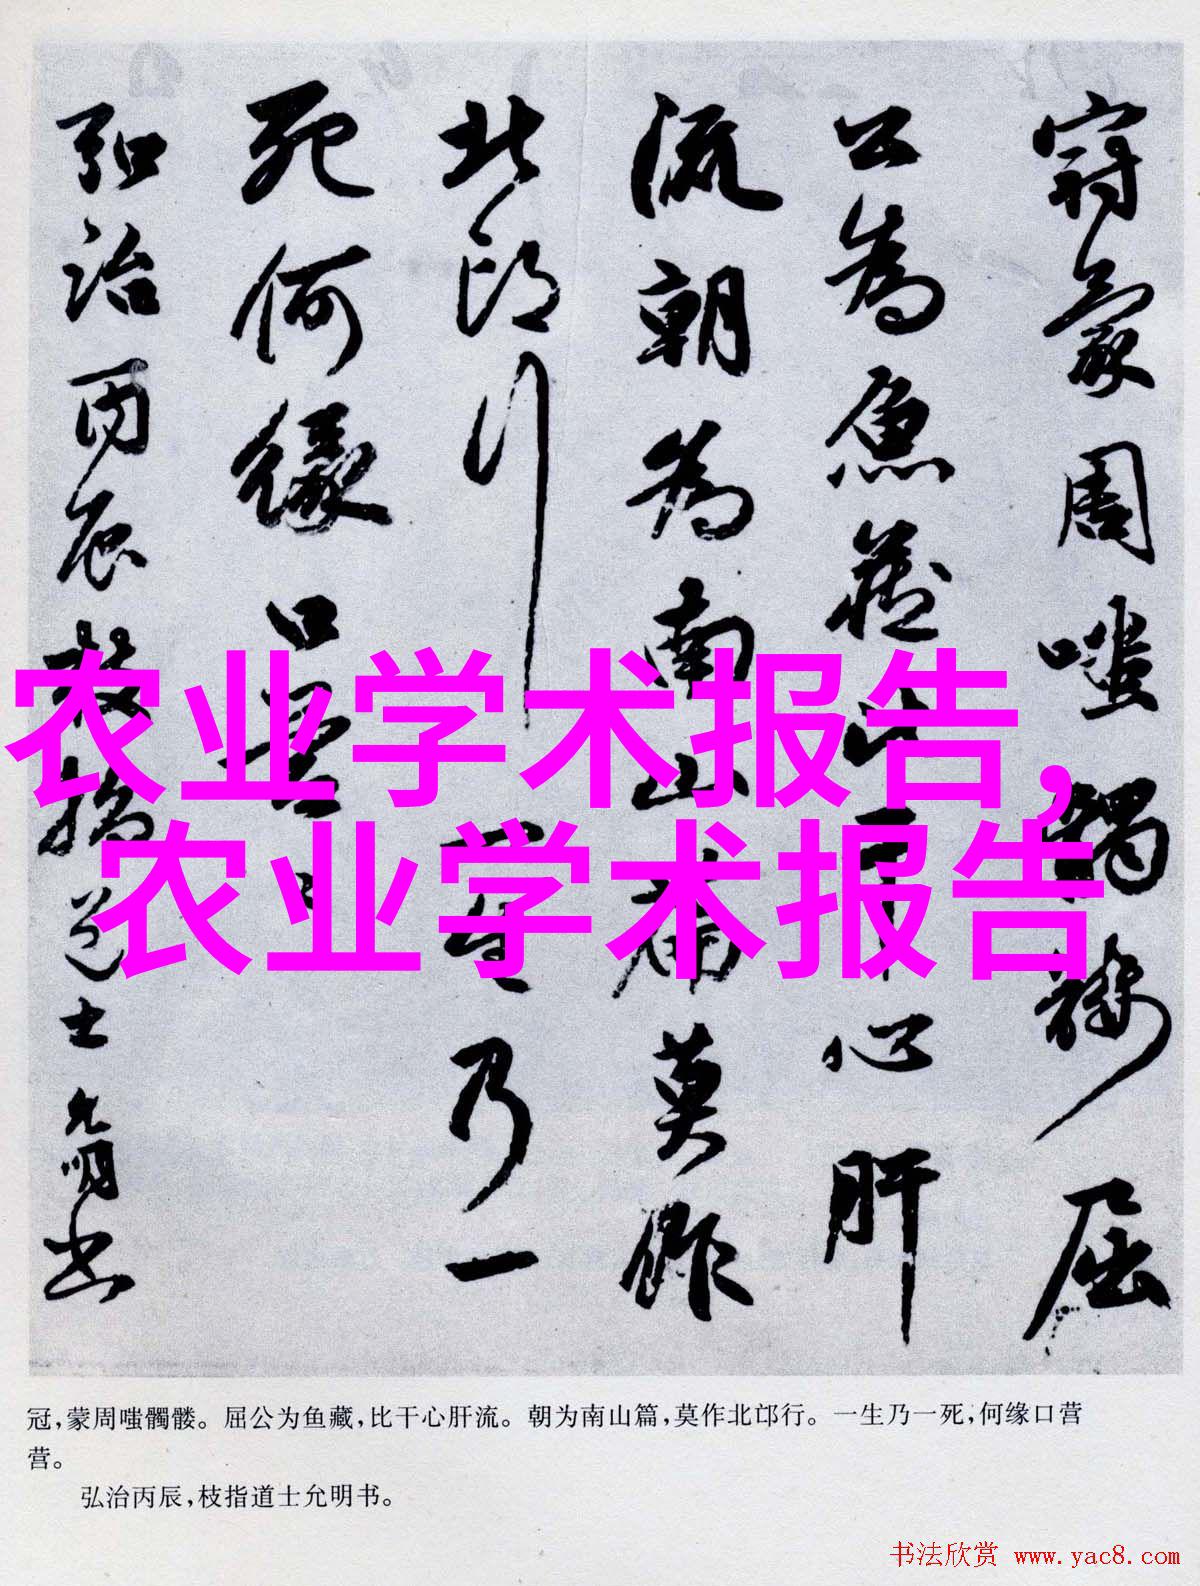 冠蒙周嗤髑髏屈
公為魚藏比干心肝
流朝為南山篇莫作
北邙行一生乃一
死何緣口營營
弘治丙辰枝指道士允明書
农业学术报告，
农业学术报告
冠，蒙周嗤髑髅。屈公为鱼藏，比干心肝流。朝为南山篇，莫作北邙行。一生乃一死，何缘口营
营。
弘治丙辰，枝指道士允明书。
书法欣赏 www.yac8.com